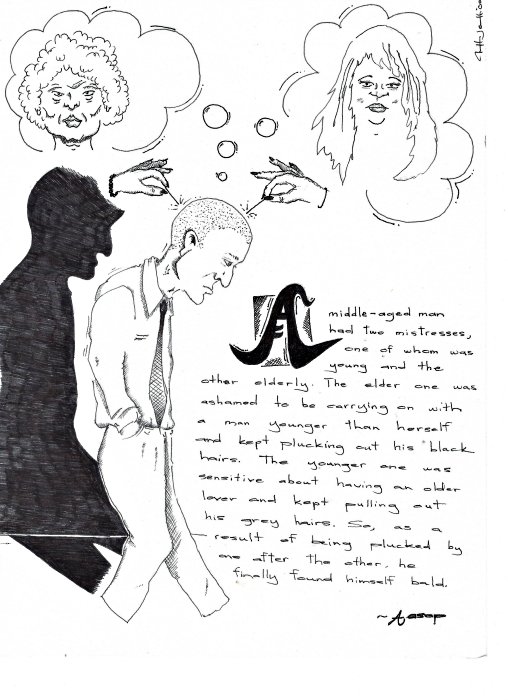 A middle-aged man
had two mistresses,
one of whom was
young and the
other elderly. The elder one was
ashamed to be carrying on with
a man younger than herself
and kept plucking out his black
hairs. The younger one was
sensitive about having an older
lover and kept pulling out
his grey hairs. So, as a
result of being plucked by
one after the other, he
finally found himself bald.
~Aesop